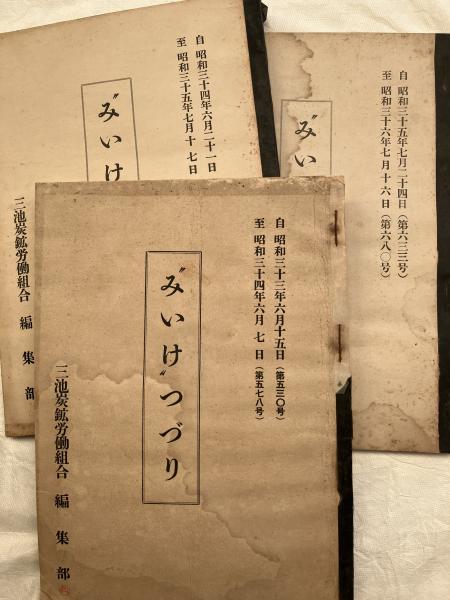 自 昭和三十三年六月十五日（第五三〇号）
至 昭和三十四年六月 七 日（第五七八号）
〝みいけ〟つづり
三池炭鉱労働組合 編 集 部
自 昭和三十四年六月二十一日
至 昭和三十五年七月十 七 日
〝みいけ
三池炭鉱労働組合 編 集 部
自 昭和三十五年七月二十四日（第六三三号）
至 昭和三十六年七月十六日（第六八〇号）
〝みい